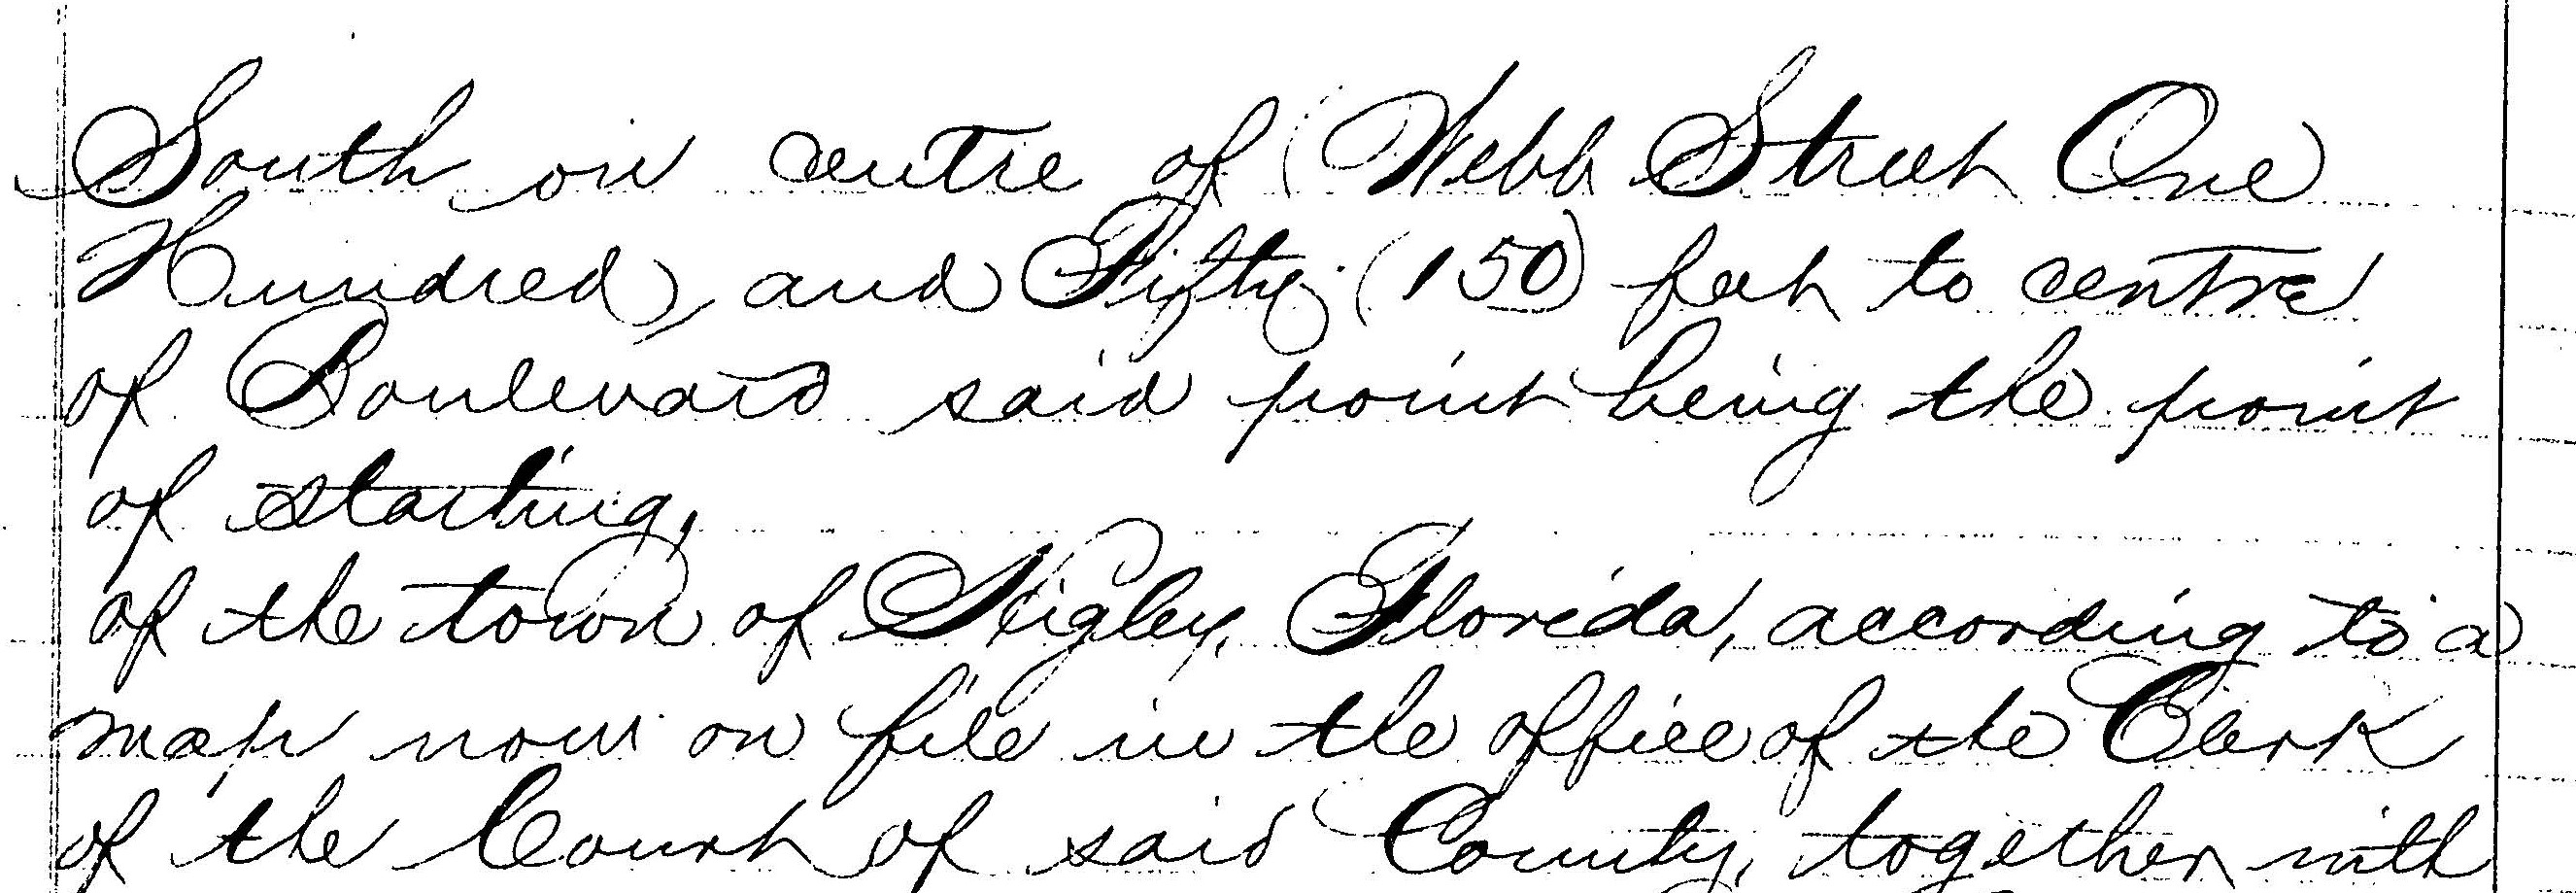 South on centre of Webb Street One
Hundred, and Fifty (150) feet to centre
of Boulevard said point being the point
of starting,
of the town of Sligley, Florida, according to a
map now on file in the office of the Clerk
of the Court of said County, together with